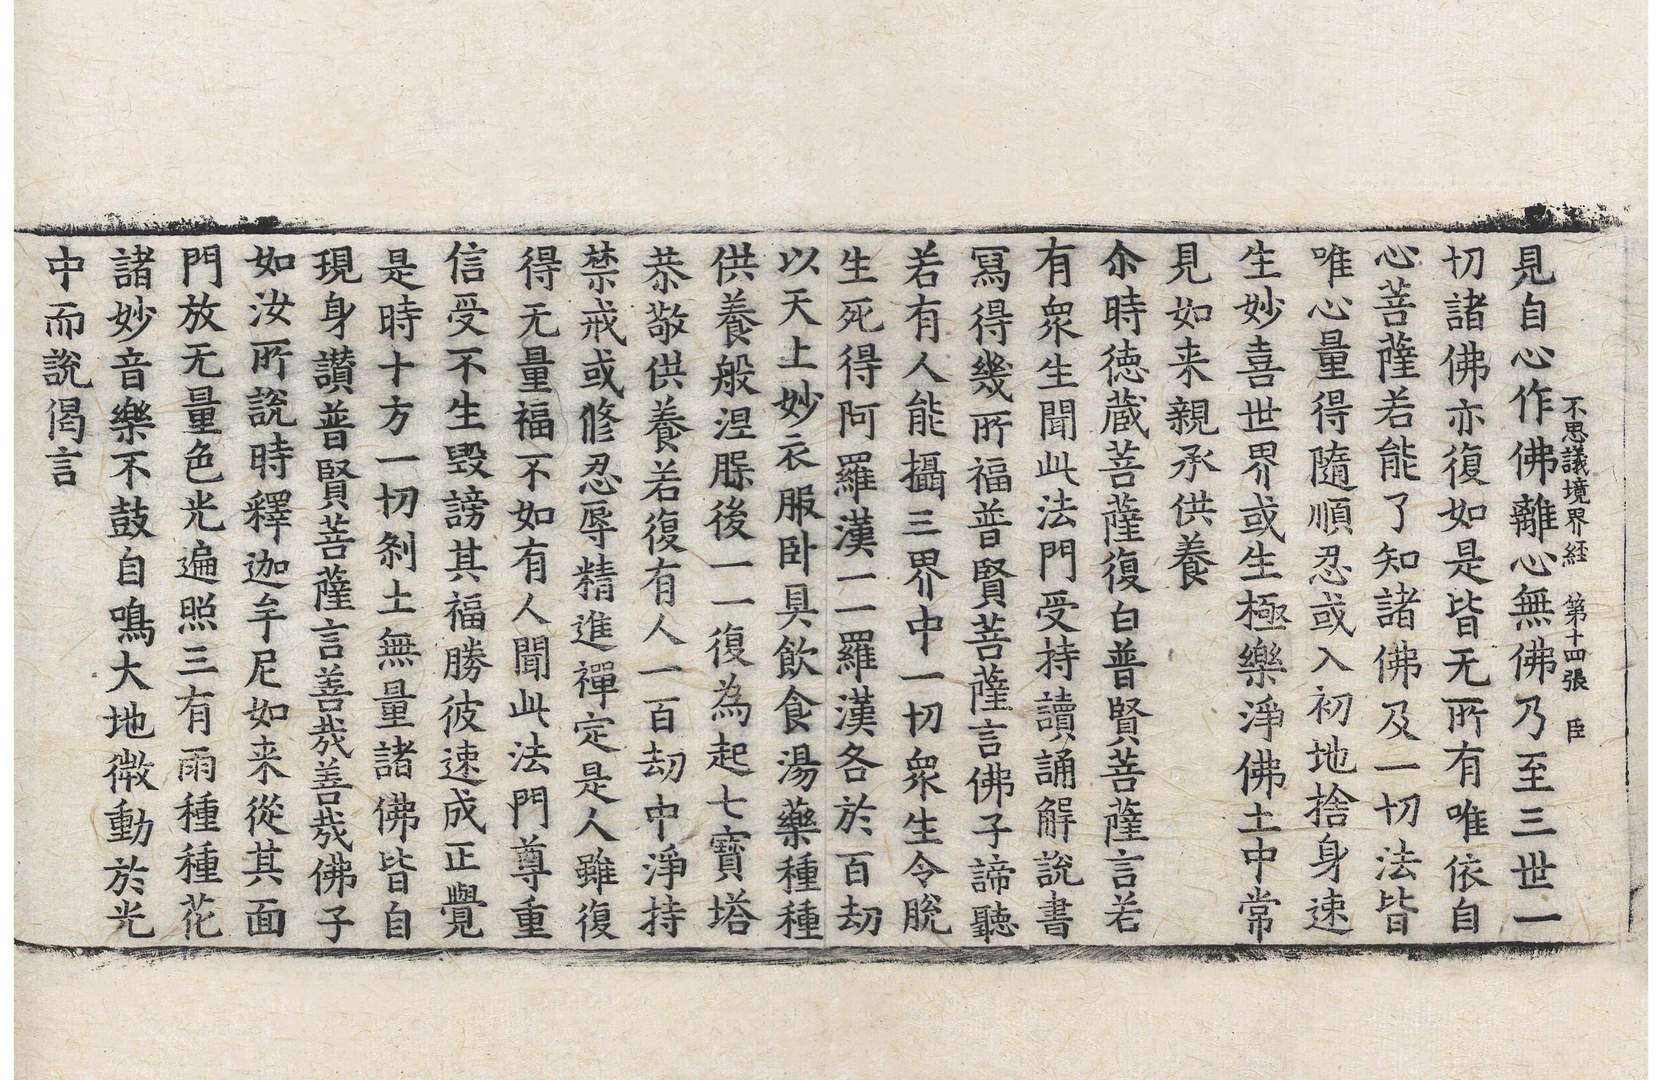 不思議境界経 第十四張 臣
見自心作佛離心無佛乃至三世一
切諸佛亦復如是皆无所有唯依自
心菩薩若能了知諸佛及一切法皆
唯心量得隨順忍或入初地捨身速
生妙喜世界或生極樂淨佛土中常
見如来親承供養
尒時徳蔵菩薩復白普賢菩薩言若
有衆生聞此法門受持讀誦解說書
寫得幾所福普賢菩薩言佛子諦聽
若有人能攝三界中一切衆生令脫
生死得阿羅漢一一羅漢各於百劫
以天上妙衣服卧具飲食湯藥種種
供養般涅槃後一一復為起七寶塔
恭敬供養若復有人一百劫中淨持
禁戒或修忍辱精進禪定是人雖復
得无量福不如有人聞此法門尊重
信受不生毀謗其福勝彼速成正覺
是時十方一切刹土無量諸佛皆自
現身讃普賢菩薩言善哉善哉佛子
如汝所說時釋迦牟尼如来從其面
門放无量色光遍照三有雨種種花
諸妙音樂不鼓自鳴大地微動於光
中而說偈言